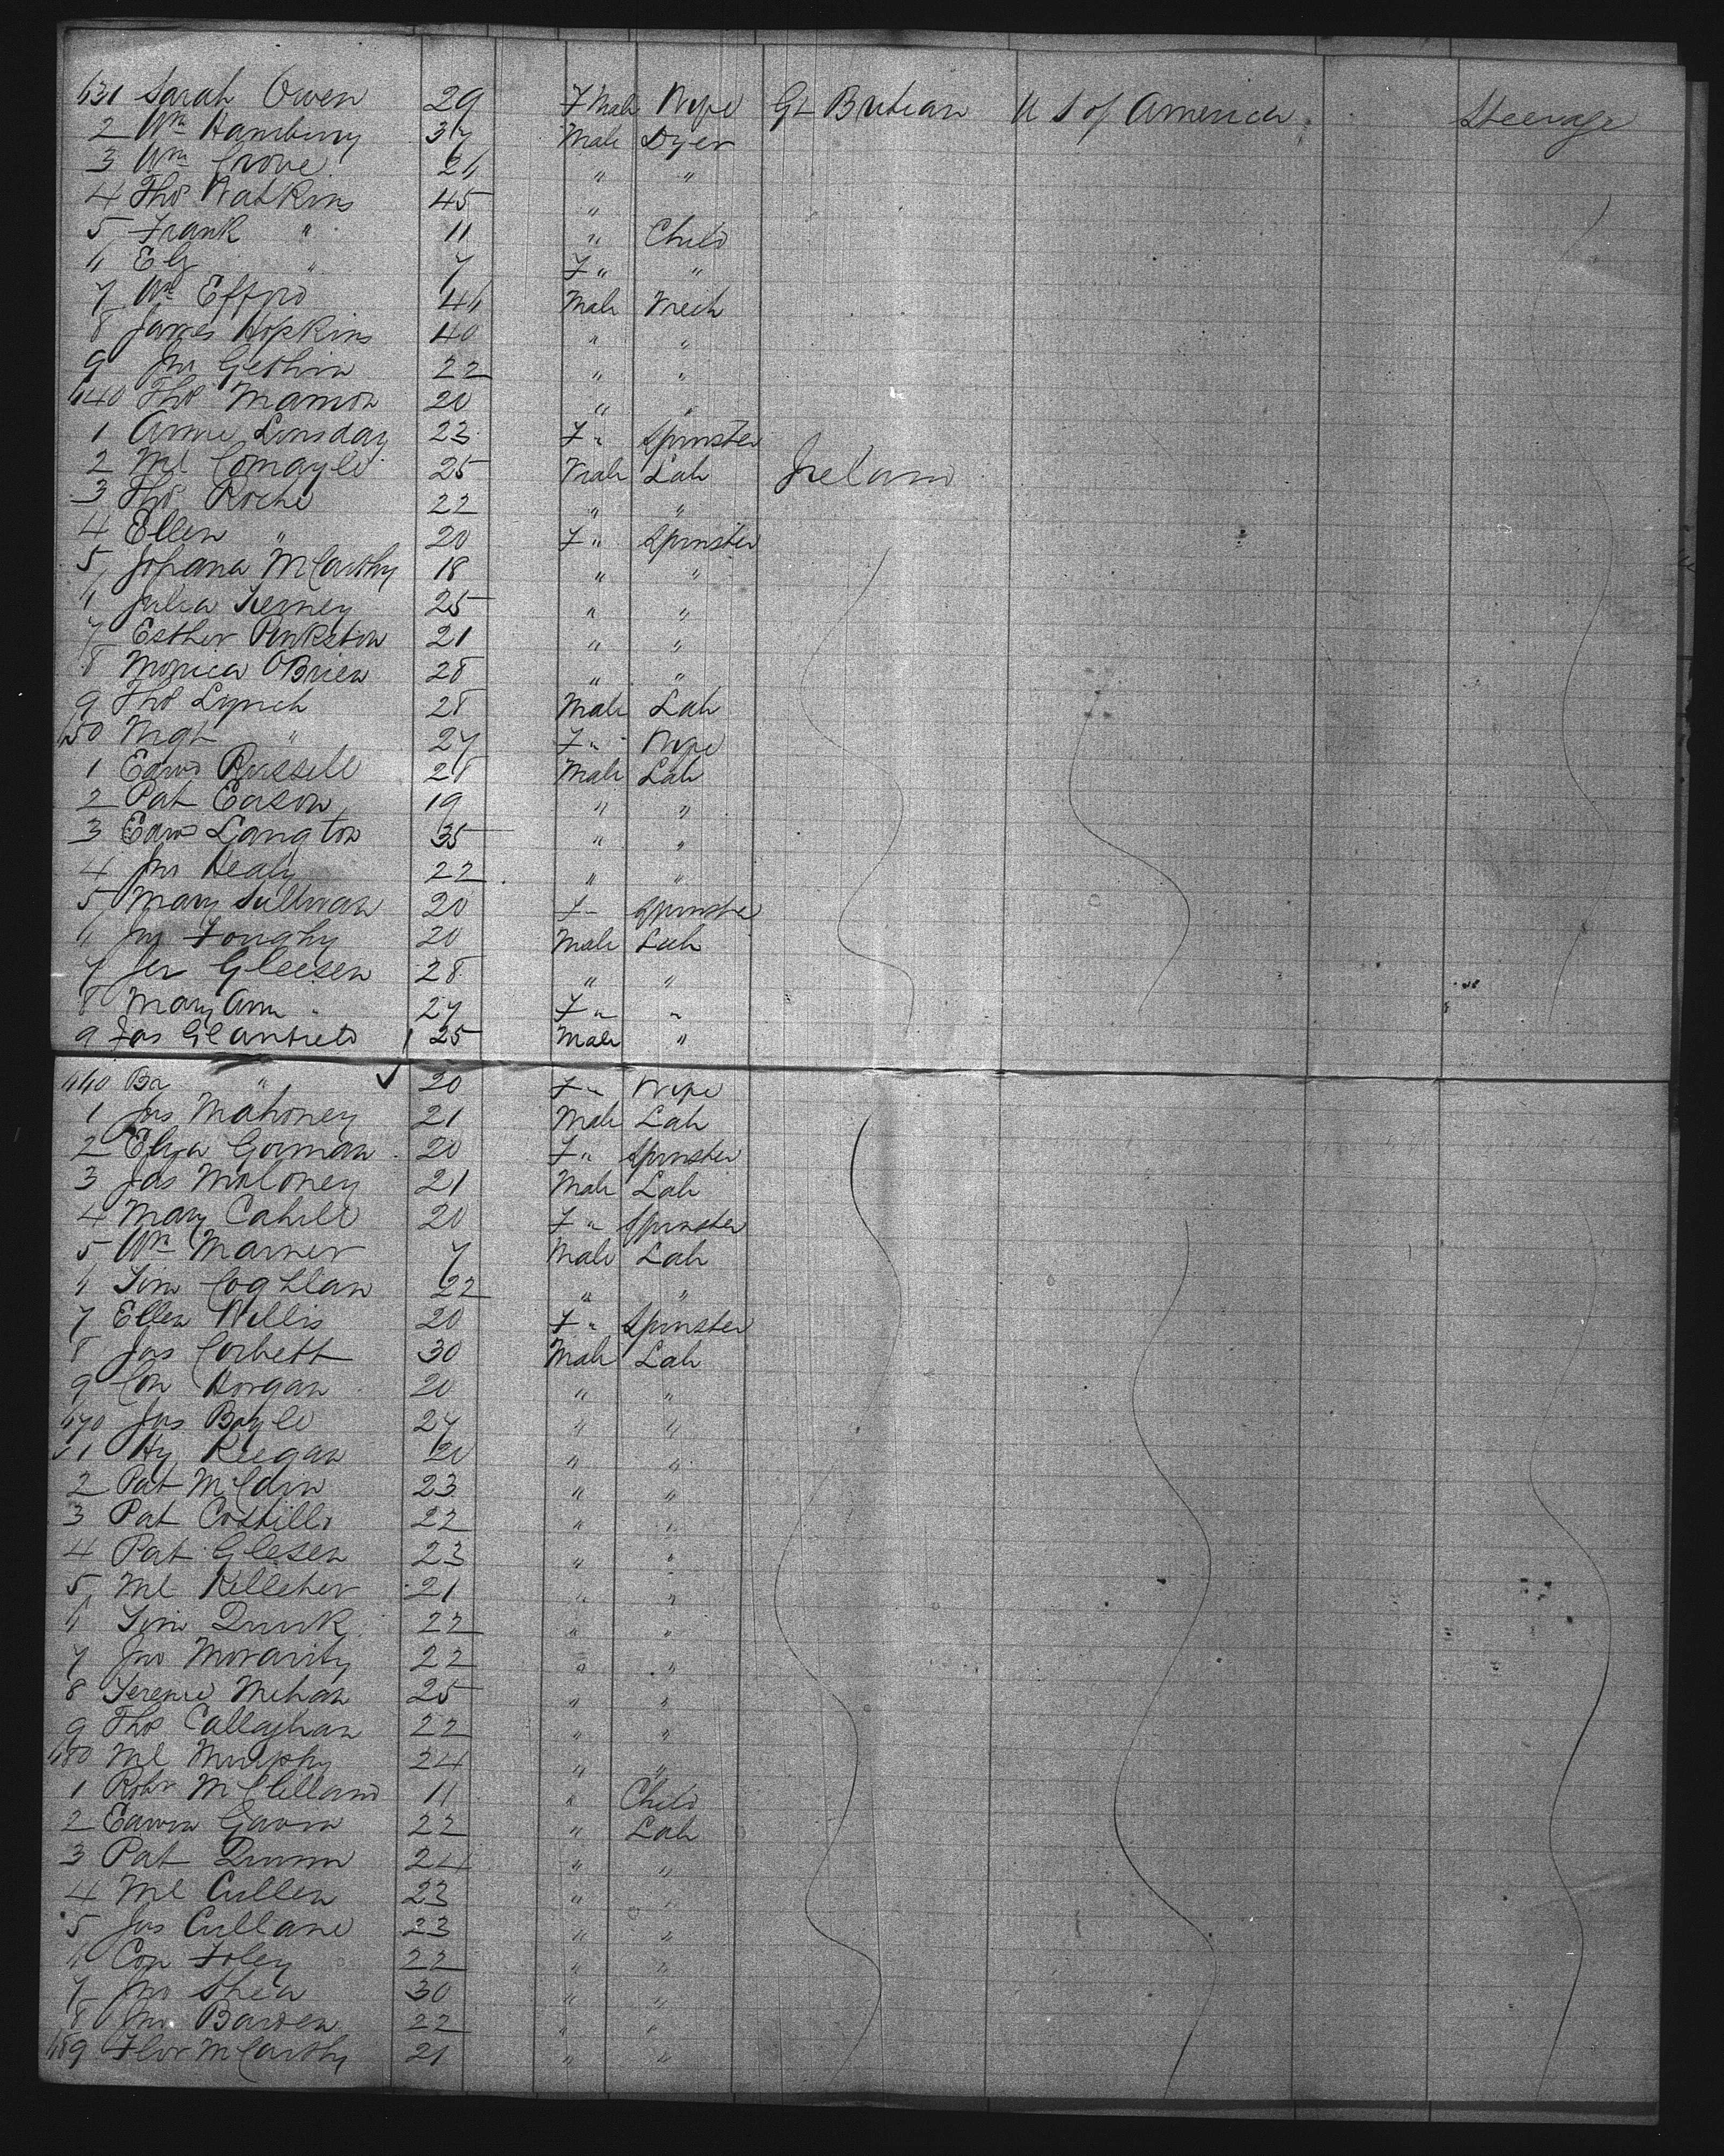 631 Sarah Owen 29 F Male Wife Gt Britian U S of America Steerage
2 Wm Hambury 37 Male Dyer
3 Wm Crove 26 " "
4 Thos Watkins 45 "
5 Frank " 11 " Child
6 Elz " 7 F " "
7 Wm Efford 46 Male Mech
8 James Hopkins 40 " "
9 Jno Gethin 22 " "
640 Thos Mannon 20 " "
1 Annie Linsday 23 F " Spinster
2 Ml Comayle 25 Male Lab Ireland
3 Thos Roche 22 " "
4 Ellen " 20 F " Spinster
5 Johana McCarthy 18 " "
6 Julia Tierney 25 " "
7 Esther Pinkston 21 " "
8 Monica OBrien 28 " "
9 Thos Lynch 28 Male Lab
650 Mgt " 27 F " Wife
1 Edwd Russell 28 Male Lab
2 Pat Eason 19 " "
3 Edwd Langton 35 " "
4 Jno Healy 22 " "
5 Mary Sullivan 20 F " Spinster
6 Foughy 20 Male Lab
7 Jer Gleesen 28 " "
8 Mary Ann " 27 F " "
9 Jas Glanfield 25 Male "
660 " 20 F " Wife
1 Jas Mahoney 21 Male Lab
2 Eliza Gorman 20 F " Spinster
3 Jas Moloney 21 Male Lab
4 Mary Cahill 20 F " Spinster
5 Wm Marner 7 Male Lab
6 Tim Coghlan 22 " "
7 Ellen Willis 20 F " Spinster
8 Jas Corbett 30 Male Lab
9 Con Horgan 20 " "
670 Jas Boyle 27 " "
71 Hy Reegan 20 " "
2 Pat 23 " "
3 Pat Costillo 22 " "
4 Pat Glesen 23 " "
5 Ml Kelleher 21 " "
6 Tim Quirk 22 " "
7 Jno Morarity 22 " "
8 Terence Mehan 25 " "
9 Thos Callaghan 22 " "
680 Ml Murphy 24 " "
1 Robt McClelland 11 " Child
2 Edwin Gavin 22 " Lab
3 Pat Quinn 24 " "
4 Ml Cullen 23 " "
5 Jas Cullane 23 " "
6 Con Foley 22 " "
7 Jno Shea 30 " "
8 Jno Barden 22 " "
689 Flor McCarthy 21 " "